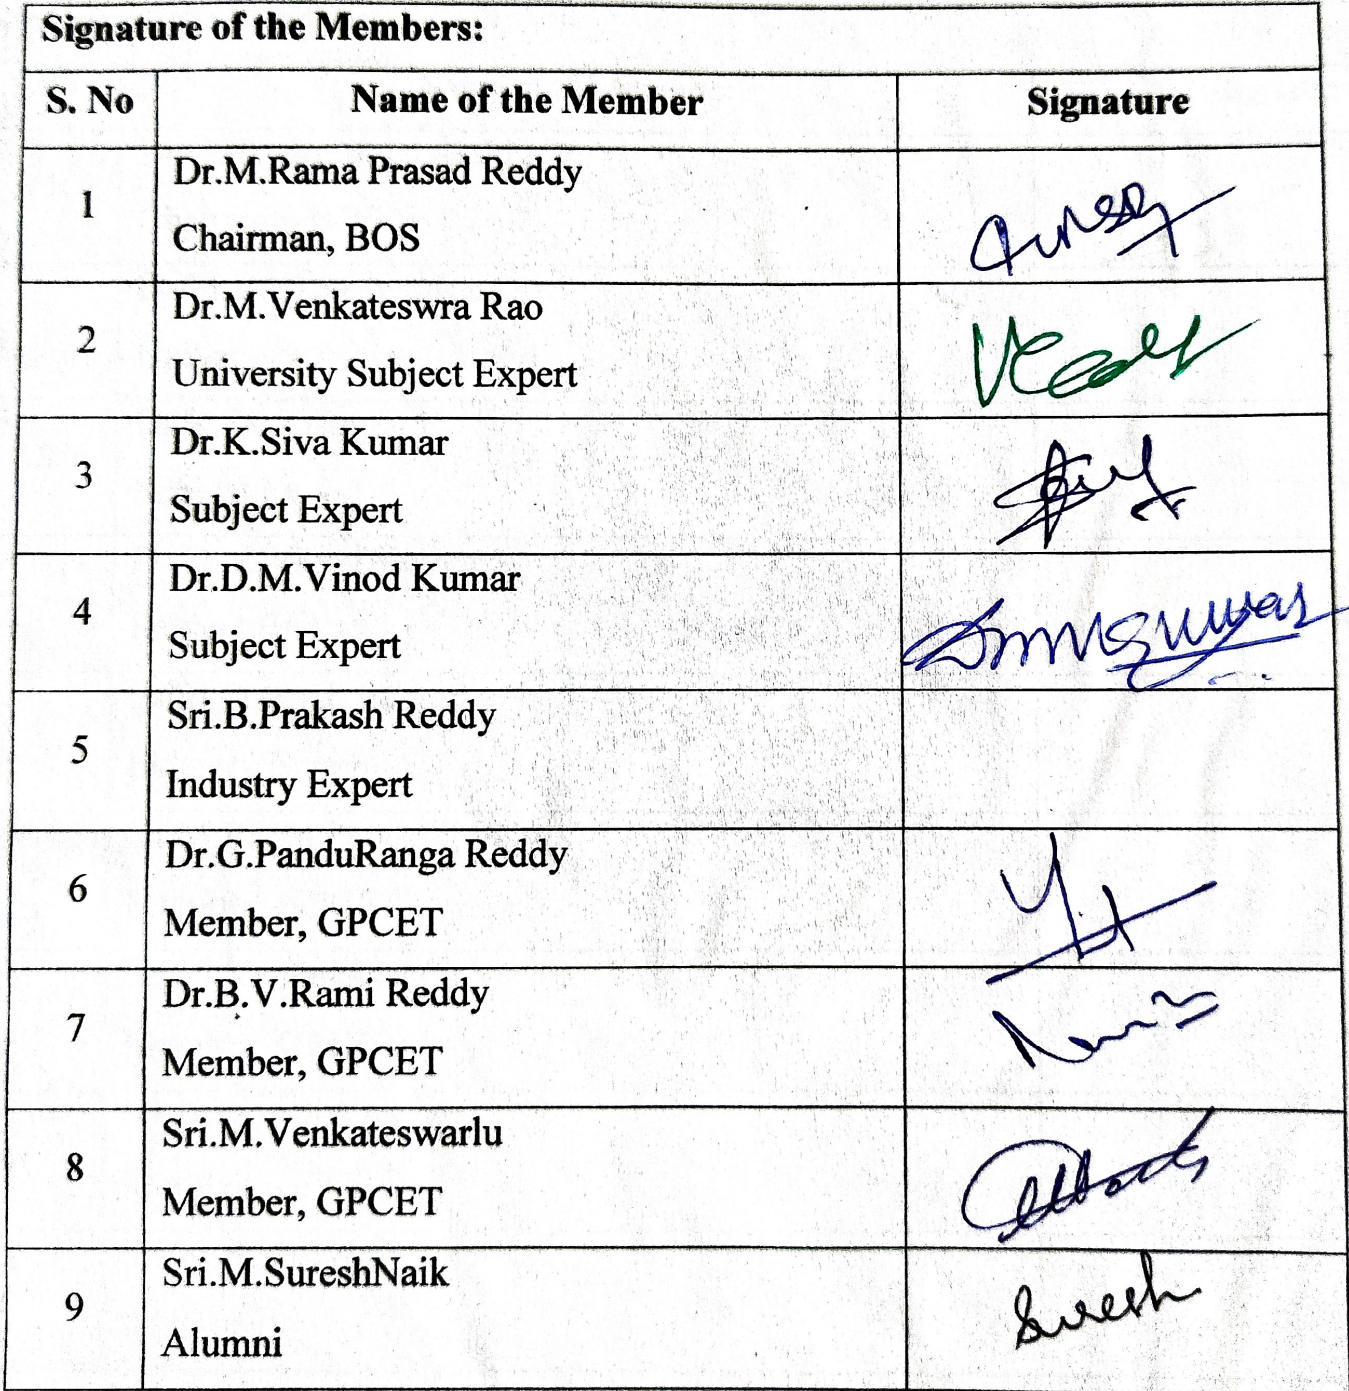 Signature of the Members:
S. No Name of the Member Signature
1 Dr.M.Rama Prasad Reddy
Chairman, BOS
2 Dr.M.Venkateswra Rao
University Subject Expert
3 Dr.K.Siva Kumar
Subject Expert
4 Dr.D.M.Vinod Kumar
Subject Expert
5 Sri.B.Prakash Reddy
Industry Expert
6 Dr.G.PanduRanga Reddy
Member, GPCET
7 Dr.B.V.Rami Reddy
Member, GPCET
8 Sri.M.Venkateswarlu
Member, GPCET
9 Sri.M.SureshNaik Suresh
Alumni